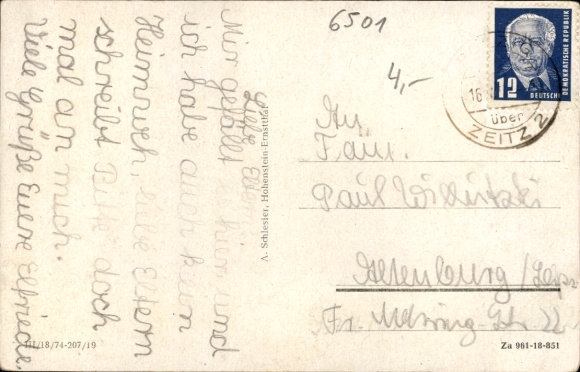 6501
4,-
Liebe Eltern
Mir gefällt es hier und
ich habe auch kein
Heimweh, liebe Eltern
schreibt Bitte doch
mal an mich.
Viele Grüße Eure Elfriede.
A. Schlesier, Hohenstein-Ernstthal
III/18/74-207/19
DEUTSCHE
DEMOKRATISCHE REPUBLIK
12
16
über
ZEITZ 2
An
Fam.
Paul
Altenburg /
Fr.
22
Za 961-18-851